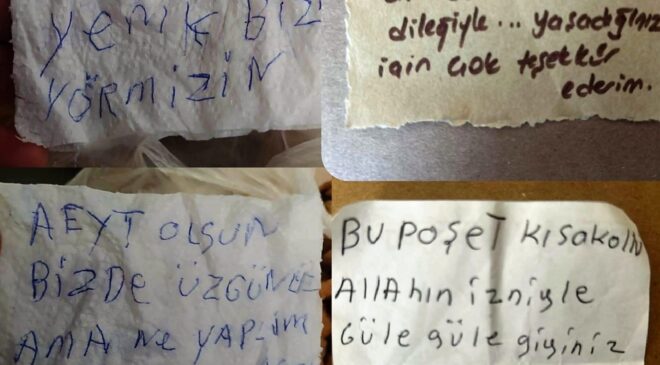 yemik Biz
YÖRMİZİN
dileğiyle... yaşadığınız
için çok teşekkür
ederim.
AEYT OLSUN
BİZDE ÜZGÜNÜZ
AMA NE YAPLIM
BU POŞET KISAKOLN
AllAhın izniyle
Güle güle giyiniz